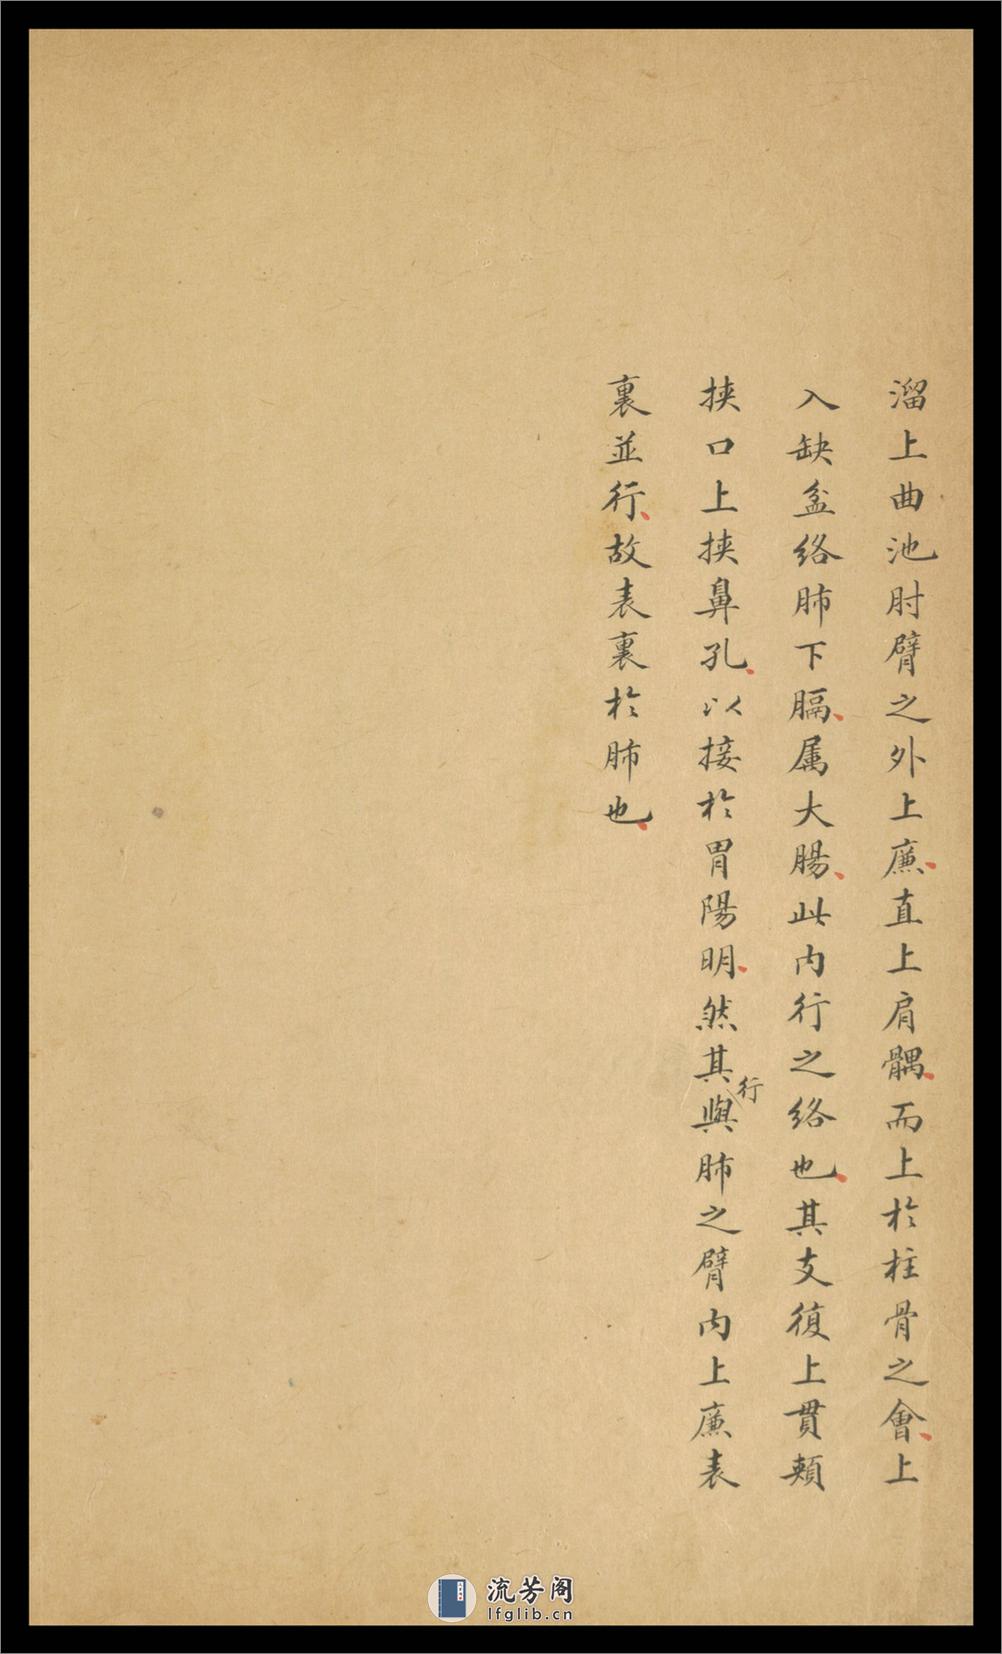 溜上曲池肘臂之外上廉直上肩髃而上於柱骨之會上
入缺盆絡肺下膈属大腸此内行之絡也其支復上貫頰
挟口上挟鼻孔以接於胃陽明然其行與肺之臂内上廉表
裏並行故表裏於肺也
流芳阁
lfglib.cn